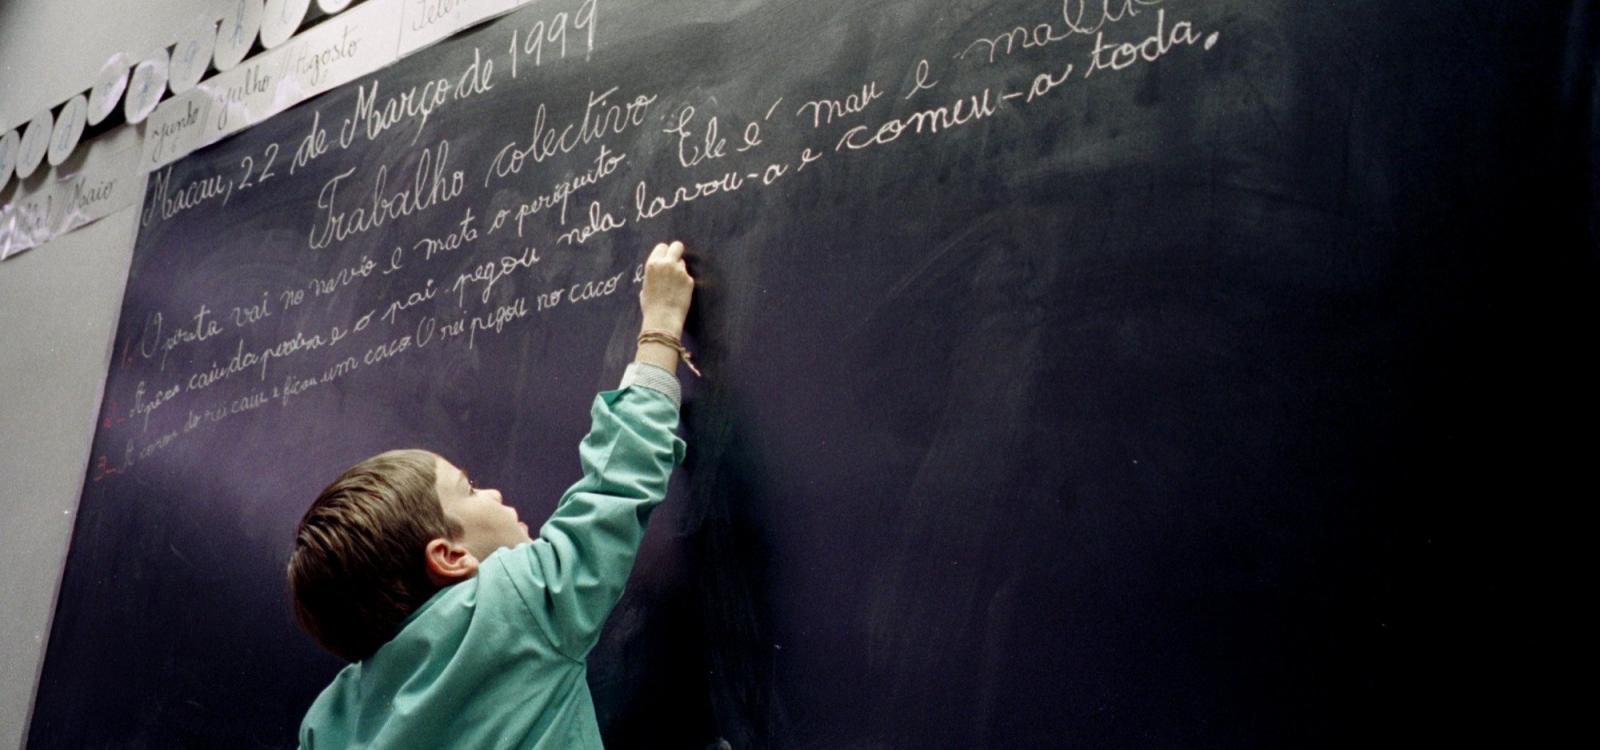 Junho Julho Agosto
Maio
Macau, 22 de Março de 1999
Trabalho colectivo
1- O pirata vai no navio e mata o periquito. Ele é mau e
2- A pera caiu da pereira e o pai pegou nela lavou-a e comeu-a toda.
3- A coroa do rei caiu e ficou um caco. O rei pegou no caco e